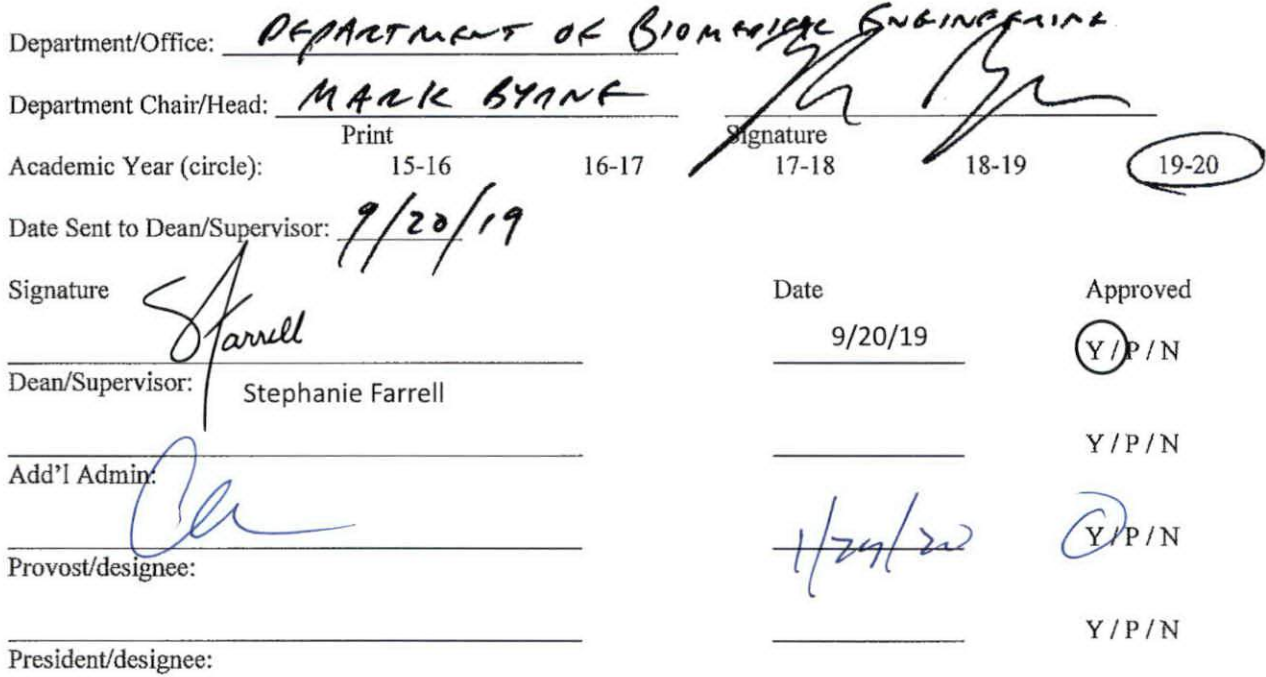 Department/Office: DEPARTMENT OF BIOMEDICAL ENGINEERING
Department Chair/Head: MARK BYRNE
Print Signature
Academic Year (circle): 15-16 16-17 17-18 18-19 19-20
Date Sent to Dean/Supervisor: 9/20/19
Signature Date Approved
SFarrell 9/20/19 Y / P / N
Dean/Supervisor: Stephanie Farrell
Y / P / N
Add'l Admin:
Y / P / N
Provost/designee:
Y / P / N
President/designee: